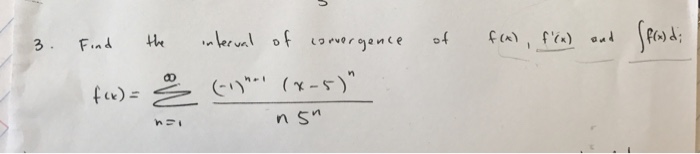 3. Find the interval of convergence of f(x), f'(x) and ∫f(x)d;
f(x) = ∞ Σ n=1 (-1)ⁿ⁺¹ (x-5)ⁿ / n 5ⁿ